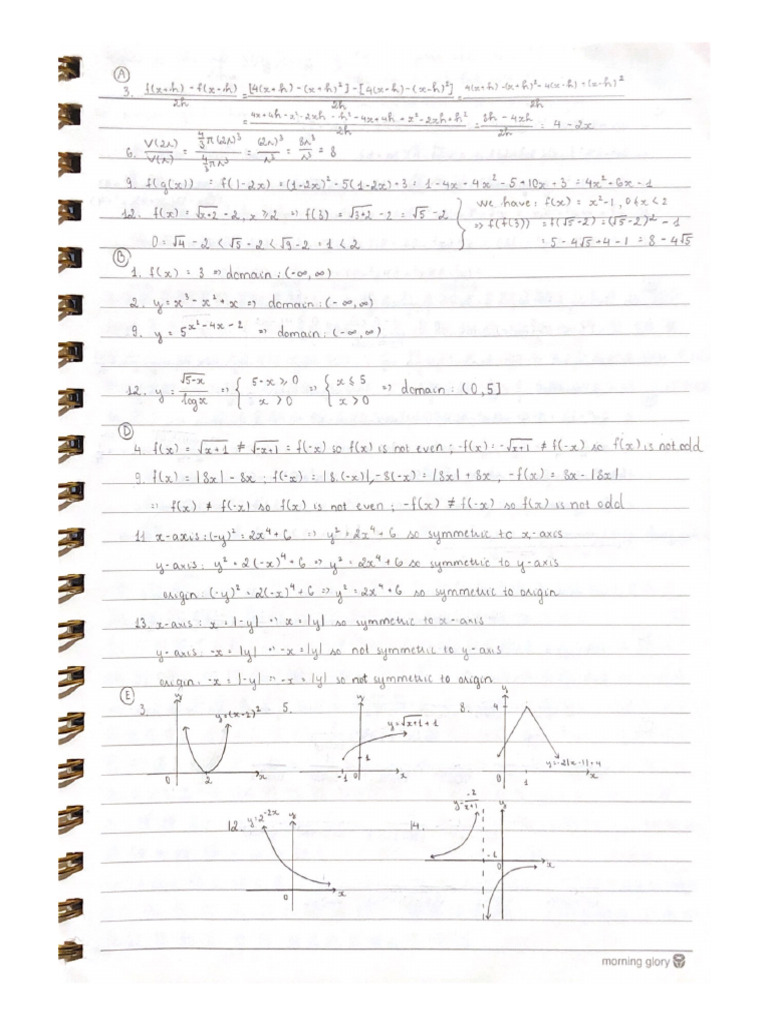 A
3. f(x+h) - f(x-h) / 2h = [4(x+h) - (x+h)²] - [4(x-h) - (x-h)²] / 2h = 4(x+h) - (x+h)² - 4(x-h) + (x-h)² / 2h
= 4x + 4h - x² - 2xh - h² - 4x + 4h + x² - 2xh + h² / 2h = 8h - 4xh / 2h = 4 - 2x
6. V(2r) / V(r) = 4/3 π (2r)³ / 4/3 π r³ = (2r)³ / r³ = 8r³ / r³ = 8
9. f(g(x)) = f(1-2x) = (1-2x)² - 5(1-2x) + 3 = 1 - 4x + 4x² - 5 + 10x + 3 = 4x² + 6x - 1
12. f(x) = √x+2 - 2, x ≥ 2 => f(3) = √3+2 - 2 = √5 - 2
0 = √4 - 2 < √5 - 2 < √9 - 2 = 1 < 2
we have: f(x) = x² - 1, 0 ≤ x < 2
=> f(f(3)) = f(√5-2) = (√5-2)² - 1
= 5 - 4√5 + 4 - 1 = 8 - 4√5
B
1. f(x) = 3 => domain: (-∞, ∞)
2. y = x³ - x² + x => domain: (-∞, ∞)
9. y = 5^(x²-4x-2) => domain: (-∞, ∞)
12. y = √5-x / log x => { 5-x ≥ 0 x > 0 => { x ≤ 5 x > 0 => domain: (0, 5]
D
4. f(x) = √x+1 ≠ √-x+1 = f(-x) so f(x) is not even; -f(x) = -√x+1 ≠ f(-x) so f(x) is not odd
9. f(x) = |8x| - 8x ; f(-x) = |8.(-x)| - 8(-x) = |8x| + 8x, -f(x) = 8x - |8x|
=> f(x) ≠ f(-x) so f(x) is not even ; -f(x) ≠ f(-x) so f(x) is not odd
11. x-axis: (-y)² = 2x⁴ + 6 => y² = 2x⁴ + 6 so symmetric to x-axis
y-axis: y² = 2(-x)⁴ + 6 => y² = 2x⁴ + 6 so symmetric to y-axis
origin: (-y)² = 2(-x)⁴ + 6 => y² = 2x⁴ + 6 so symmetric to origin
13. x-axis: x = |-y| => x = |y| so symmetric to x-axis
y-axis: -x = |y| => -x = |y| so not symmetric to y-axis
origin: -x = |-y| => -x = |y| so not symmetric to origin
E
3. y y=(x-2)² 0 2 x
5. y y=√x+1 + 1 1 -1 0 x
8. y 4 y=-2|x-1|+4 0 1 x
12. y=2^(-2x) y 0 x
14. y=-2/x+1 y -1 0 x
morning glory